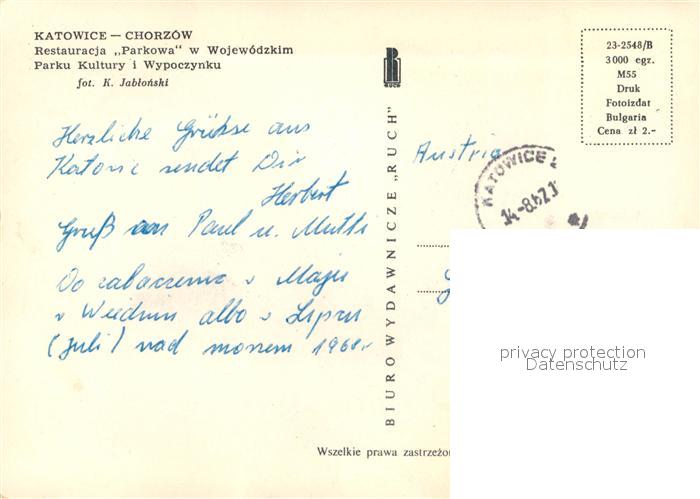 KATOWICE — CHORZÓW
Restauracja „Parkowa" w Wojewódzkim
Parku Kultury i Wypoczynku
fot. K. Jabłoński
RUCH
23-2548/B
3 000 egz.
M55
Druk
Fotoizdat
Bulgaria
Cena zł 2.-
Herzliche Grükse aus
Katovic sendet Dir
Herbert
Gruß an Paul u. Mutti
Do zabaczenia v Maju
v Wiedniu albo v Lipcu
(Juli) nad morzem 1968r
BIURO WYDAWNICZE „RUCH"
Austria
KATOWICE 2
14-8.67.1
privacy protection
Datenschutz
Wszelkie prawa zastrzeżon